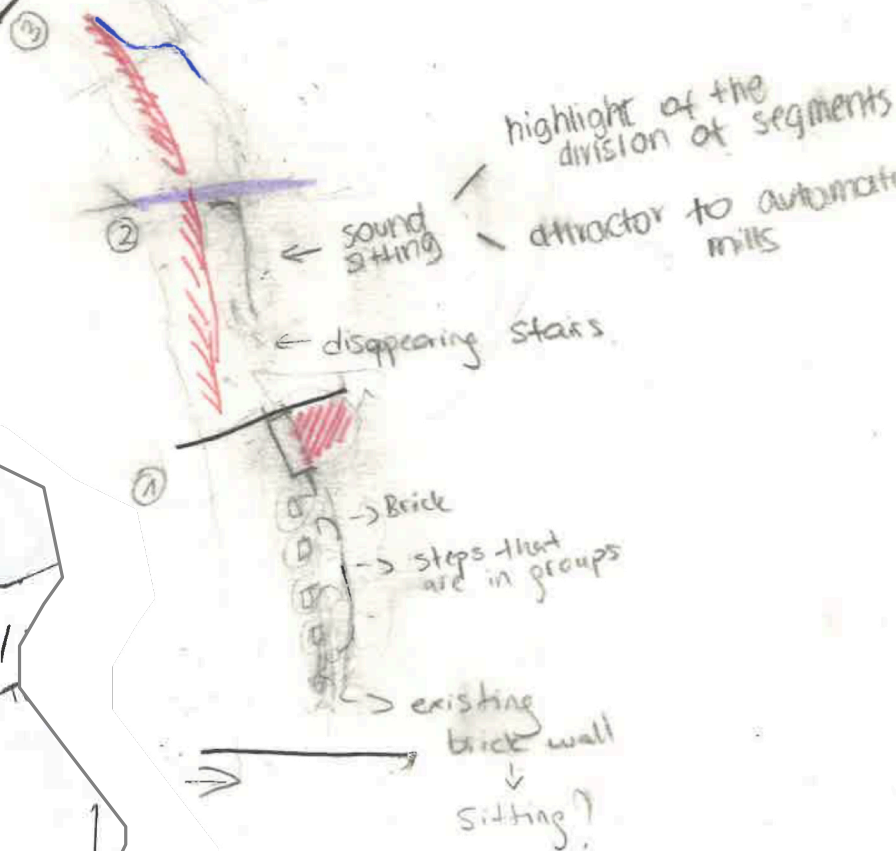 ③
highlight of the
division of segments
②
sound
sitting
attractor to automate
mills
← disappearing stairs
①
→ Brick
→ steps that
are in groups
→ existing
brick wall
↓
Sitting?